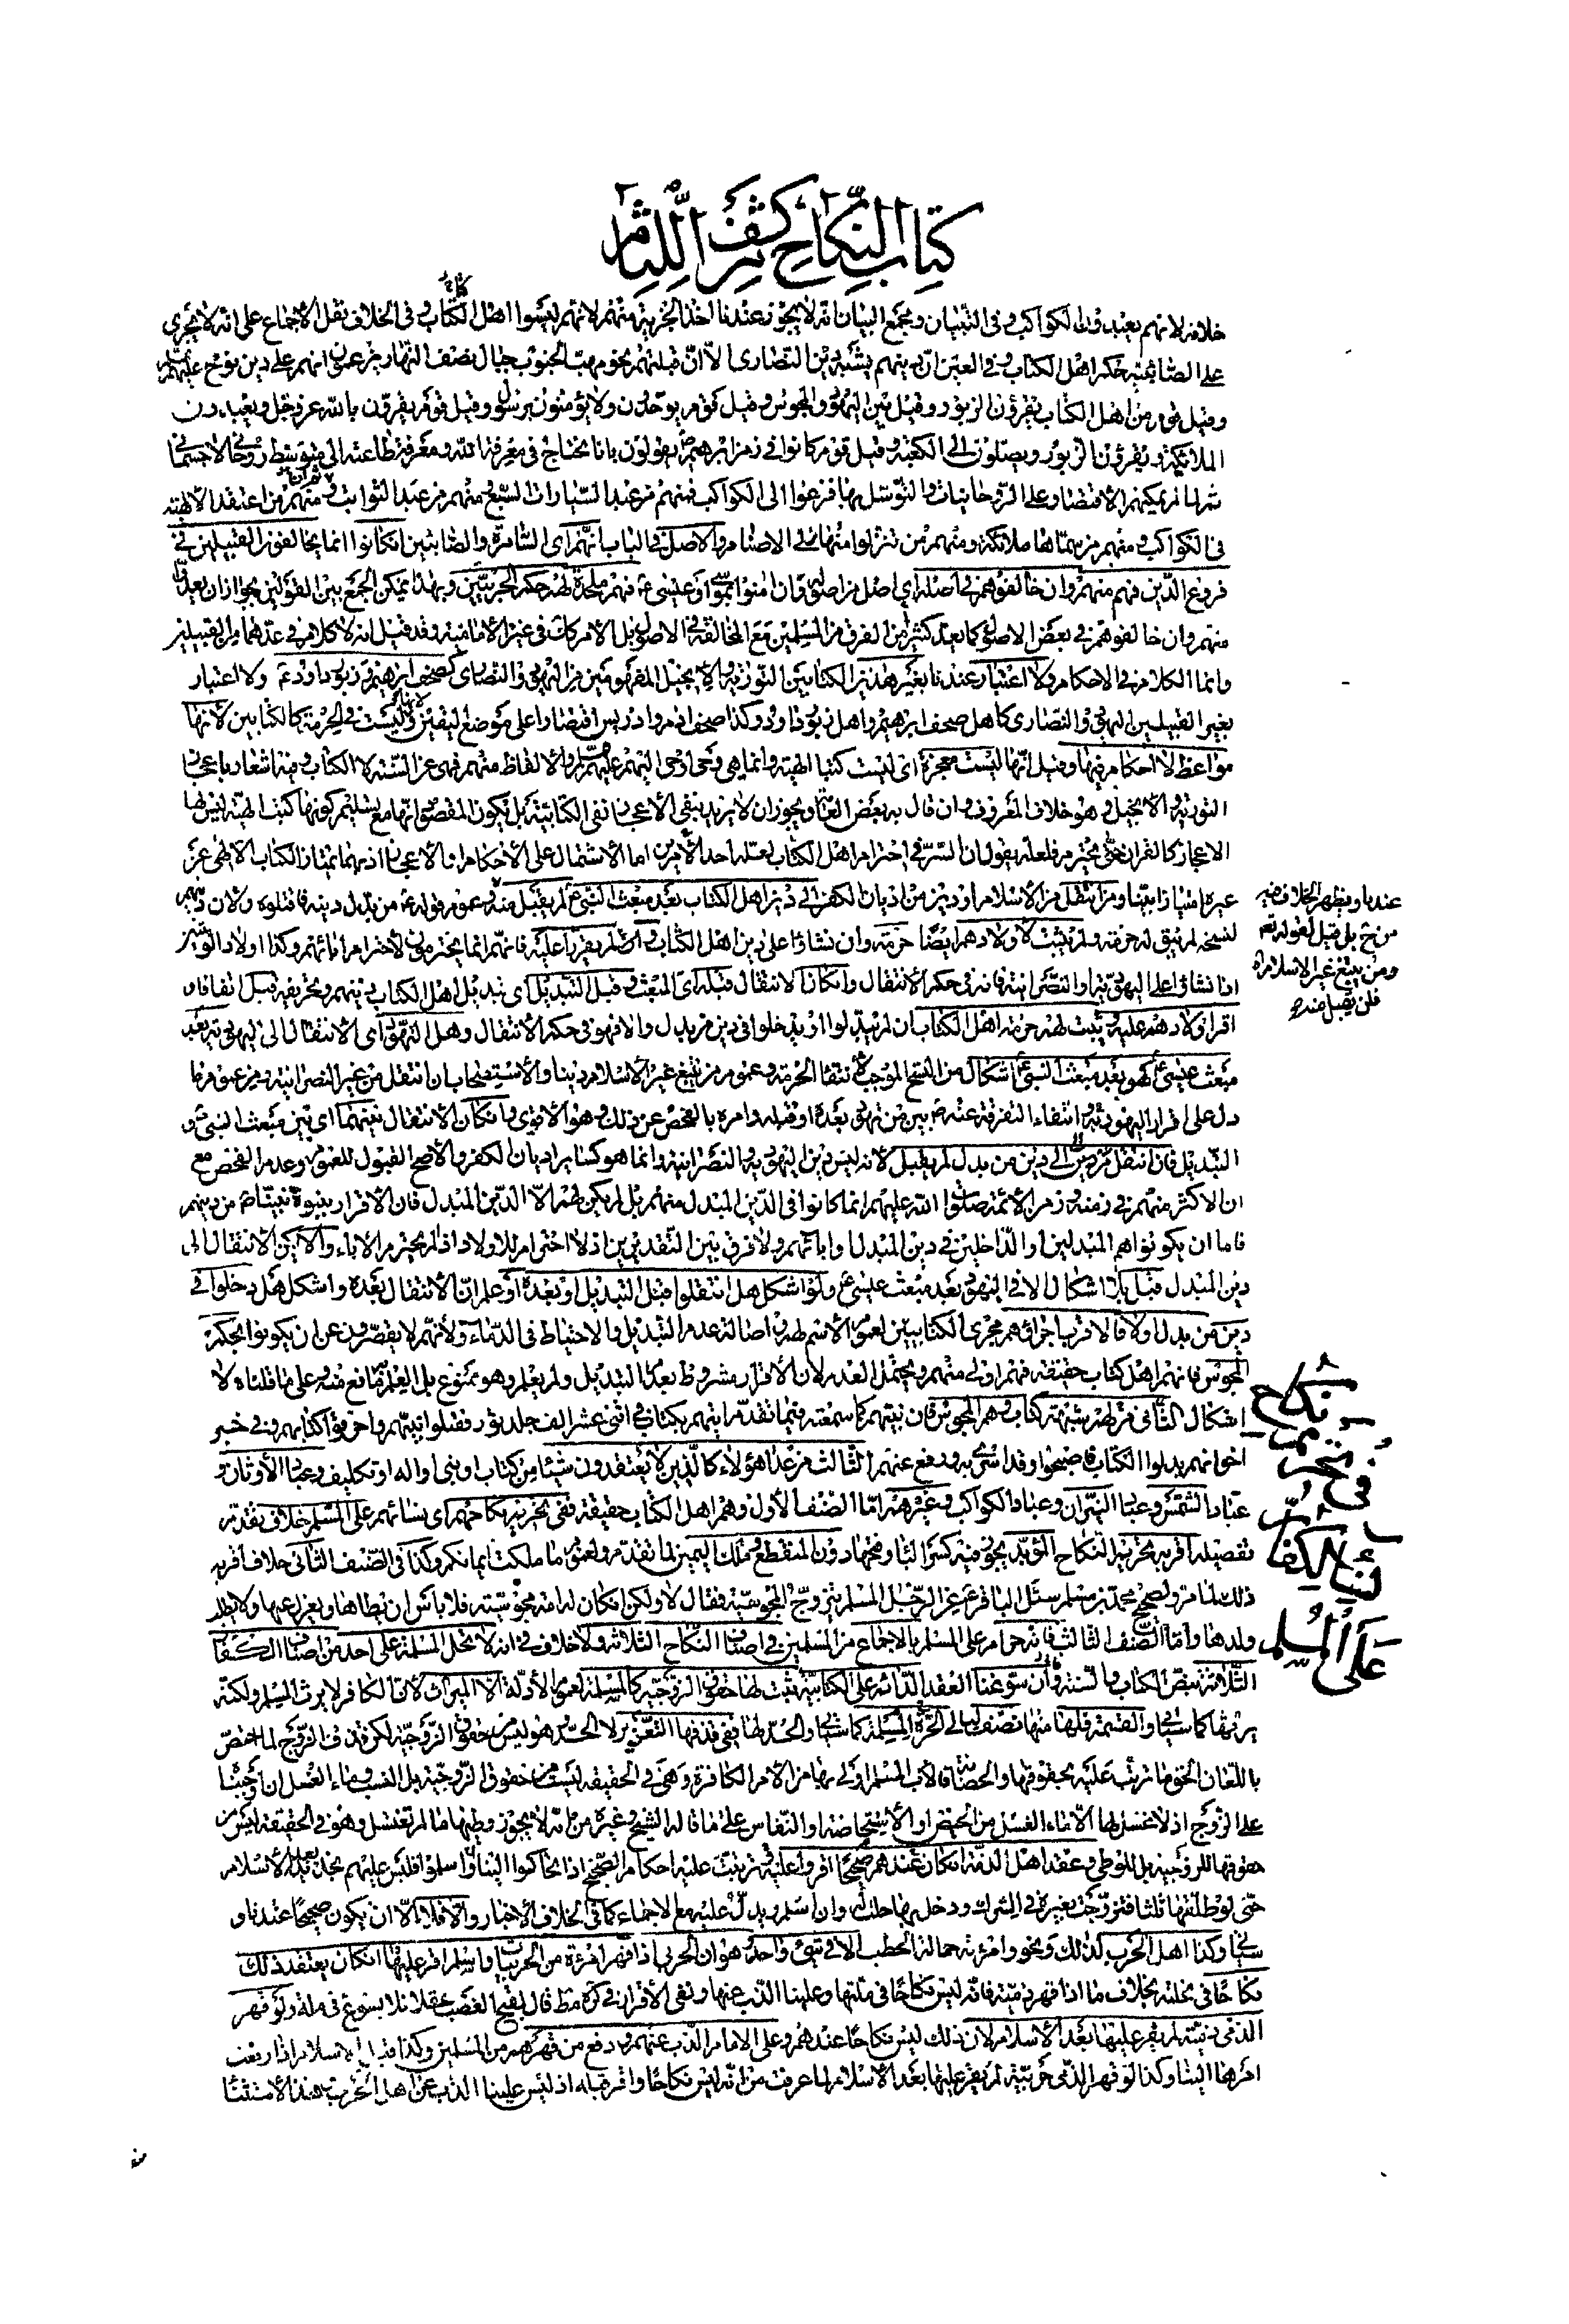 كتاب النكاح من كشف اللثام
خلافه لانهم يعبدون الكواكب وفي التبيان ومجمع البيان انه لا يجوز عندنا اخذ الجزية منهم لانهم ليسوا اهل الكتاب وفي الخلاف نقل الاجماع على انه لا يجري
على الصابئة حكم اهل الكتاب وفي العين ان دينهم يشبه دين النصارى الا ان قبلتهم نحو مهب الجنوب حيال نصف النهار يزعمون انهم على دين نوح
وقيل قوم من اهل الكتاب يقرؤن الزبور وقيل بين اليهود والمجوس وقيل قوم يوحدون ولا يؤمنون برسول وقيل قوم يقرون بالله عز وجل ويعبدون
الملائكة ويقرؤن الزبور ويصلون الى الكعبة وقيل قوم كانوا في زمن ابرهيم يقولون بانا نحتاج في معرفة الله ومعرفة طاعته الى متوسط روحاني لا جسماني
ثم لما لم يمكنهم الاقتصار على الروحانيات والتوسل بها فزعوا الى الكواكب فمنهم من عبد السيارات السبع ومنهم من عبد الثوابت ومنهم من اعتقد الالهية
في الكواكب ومنهم من سماها ملائكة ومنهم من تنزل منها الى الاصنام والاصل في الباب انهم اي السامرة والصابئين ان كانوا انما يخالفون القبيلين في
فروع الدين فهم منهم وان خالفوهم في اصله اي اصل من اصوله وان امنوا بموسى او عيسى ع فهم ملحدة لهم حكم الحربيين وبهذا يمكن الجمع بين القولين بجواز ان يعدوا
منهم وان خالفوهم في بعض الاصول كما يعد كثير من الفرق من المسلمين مع المخالفة في الاصول بل الامر كك في غير الامامية وقد قيل انه لا كلام في عدهما من القبيلين
وانما الكلام في الاحكام ولا اعتبار عندنا بغير هذين الكتابين التورية والانجيل المفهومين من اليهود والنصارى كصحف ابرهيم وزبور داود ع ولا اعتبار
بغير القبيلين اليهود والنصارى كاهل صحف ابرهيم واهل زبور داود وكذا صحف ادم وادريس اقتصارا على موضع اليقين وليست في الحرمة كالكتابين لانها
مواعظ لا احكام فيها وقيل انها ليست معجزة اي ليست كتبا الهية وانما هي وحي اوحى اليهم والالفاظ منهم فهي من السنة لا الكتاب وفيه اشعار باعجاز
التورية والانجيل وهو خلاف المعروف وان قال به بعض العامة ويجوز ان لا يريد بنفي الاعجاز نفي الكتابية بل يكون المقصود انها مع تسليم كونها كتب الهية ليس لها
الاعجاز كالقران حتى يحترم فلعله يقول ان السر في احترام اهل الكتاب لعله احد الامرين اما الاشتمال على الاحكام او الاعجاز اذ بهما يمتاز الكتاب الالهي عن
غيره امتيازا بينا ومن انتقل من الاسلام او دين من اديان الكفر الى دين اهل الكتاب بعد مبعث النبي لم يقبل منه لعموم قوله من بدل دينه فاقتلوه ولان دينهم
لنسخه لم يبق له حرمة ولم يثبت لاولادهم ايضا حرمة وان نشاؤا على دين اهل الكتاب
اذا نشاؤا على اليهودية او النصرانية فانه في حكم الانتقال وان كان الانتقال قبله اي المبعث وقبل التبديل اي تبديل اهل الكتاب دينهم وتحريفه قبل اتفاقا
اقر اولادهم عليه وثبت لهم حرمة اهل الكتاب ان لم يبدلوا او يدخلوا في دين من بدل والا فهو في حكم الانتقال وهل التهود اي الانتقال الى اليهودية بعد
مبعث عيسى كهو بعد مبعث النبي اشكال من النسخ الموجب لانتفاء الحرمة وعموم من يبتغ غير الاسلام دينا والاستصحاب
دل على اقرار اليهود وانتفاء التفرقة عنه بين من تهود بعده او قبله وامره بالفحص عن ذلك وهو الاقوى وان كان الانتقال بينهما اي بين مبعث النبي و
التبديل فان انتقل من دين الى دين من بدل لم يقبل لانه ليس دين اليهودية والنصرانية وانما هو كساير اديان الكفر والاصح القبول للعموم وعدم الفحص مع
ان الاكثر منهم في زمنه وزمن الائمة صلوات الله عليهم انما كانوا في الدين المبدل منهم بل لم يكن لهم الا الدين المبدل فان الاقرار بنبوة نبينا من دينهم
فاما ان يكونوا هم المبدلين او الداخلين في دين المبدل او ابائهم ولا فرق بين التقديرين اذ لا احترام للاولاد اذا لم يحترم الاباء والا يكن الانتقال الى
دين المبدل قبل بلا اشكال الا في التهود بعد مبعث عيسى ع ولو اشكل هل انتقلوا قبل التبديل او بعده او علم ان الانتقال بعده واشكل هل دخلوا في
دين من بدل او لا فالاقرب اجراؤهم مجرى الكتابيين لعموم الاسم لهم واصالة عدم التبديل والاحتياط في الدماء ولانهم لا يقصرون عن ان يكونوا بحكم
المجوس فانهم اهل كتاب حقيقة فهم اولى منهم ويحتمل العدم لان الاقرار مشروط بعدم التبديل ولم يعلم وهو ممنوع بل العلم مانع منه وعلى ما قلناه لا
اشكال الثاني من لهم شبهة كتاب وهم المجوس فان نبيهم كما سمعته فيما تقدم اتيهم بكتاب في اثنى عشر الف جلد ثور فقتلوا نبيهم واحرقوا كتابهم وفي خبر
اخر انهم بدلوا الكتاب فاصبحوا وقد اسرى به ورفع عنهم الثالث من عدا هؤلاء كالذين لا يعتقدون شيئا من كتاب او نبي او اله او تكليف وعباد الاوثان و
عباد الشمس وعباد النيران وعباد الكواكب وغيرهم اما الصنف الاول وهم اهل الكتاب حقيقة ففي تحريم نكاحهم اي نسائهم على المسلم خلاف تقدم
تفصيله اقربه تحريم النكاح المؤبد
ذلك لما مر ولصحيح محمد بن مسلم سئل الباقر ع عن الرجل المسلم يتزوج المجوسية فقال لا ولكن ان كان له امة مجوسية فلا باس ان يطاها ويعزل عنها ولا يطلب
ولدها واما الصنف الثالث فانه حرام على المسلم بالاجماع من المسلمين في اصناف النكاح الثلاثة ولا خلاف في انه لا تحل المسلمة على احد من اصناف الكفار
الثلاثة بنص الكتاب والسنة وان سوغنا العقد الدائم على الكتابية ثبت لها حقوق الزوجية كالمسلمة لعموم الادلة الا الميراث لان الكافر لا يرث المسلم ولكنه
يرثها كما سياتي والقسمة فلها منها نصف ليالي الحرة المسلمة كما سياتي والحد لها ففي قذفها التعزير لا الحد
باللعان الحق ما ترتب عليه بحقوقها والحضانة فالاب المسلم اولى بها من الام الكافرة وهي في الحقيقة ليست من حقوق الزوجية بل النسب وماء الغسل ان اوجبنا
على الزوج اذ لا غسل لها الا ماء الغسل من الحيض او الاستحاضة او النفاس على ما قاله الشيخ وغيره من انه لا يجوز وطيها ما لم تغتسل وهو في الحقيقة ليس من
حقوقها للزوجية بل للوطي وعقد اهل الذمة ان كان عندهم صحيحا اقروا عليه وترتبت عليه احكام الصحيح اذا تحاكموا الينا او اسلموا
حتى لو طلقها ثلثا فتزوجت بغيره في الشرك ودخل بها حلت له وان اسلم ويدل عليه مع الاجماع كما في الخلاف الاخبار والا فلا الا ان يكون صحيحا عندنا و
سياتي وكذا اهل الحرب لذلك ونحو وامرأته حمالة الحطب الا في شيء واحد وهو ان الحربي اذا قهر امرأة من الحربيات واسلم اقر عليها ان كان يعتقد ذلك
نكاحا في نحلته بخلاف ما اذا قهر ذمية فانه ليس نكاحا في ملتها وعلينا الذب عنها ونفى الاقرار في كره مط قال لقبح الغصب عقلا فلا يسوغ في ملة ولو قهر
الذمي ذمية لم يقر عليها بعد الاسلام لان ذلك ليس نكاحا عندهم وعلى الامام الذب عنهم ودفع من قهرهم من المسلمين وكذا قبل الاسلام اذا رفعت
امرها الينا وكذا لو قهر الذمي حربية لم يقر عليها بعد الاسلام لما عرفت من انه ليس نكاحا واقر قبله اذ ليس علينا الذب عن اهل الحرب
عندنا ويظهر الخلاف فيه
من خ بل قيل لقوله تعم
ومن يبتغ غير الاسلام دينا
فلن يقبل منه
نكاح
في تحريم
نساء الكفار
على المسلم